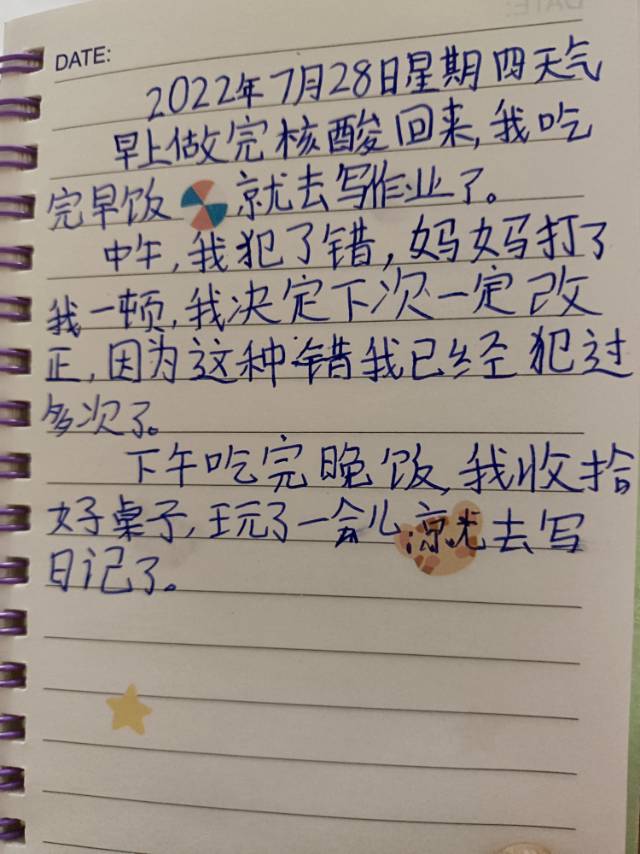 DATE:
2022年7月28日星期四天气
早上做完核酸回来,我吃
完早饭就去写作业了。
中午,我犯了错,妈妈打了
我一顿,我决定下次一定改
正,因为这种错我已经犯过
多次了。
下午吃完晚饭,我收拾
好桌子,玩了一会儿就去写
日记了。